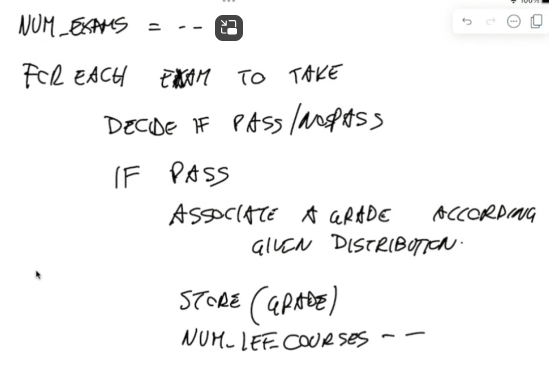 NUM_EXAMS = --
FOR EACH EXAM TO TAKE
DECIDE IF PASS/NOPASS
IF PASS
ASSOCIATE A GRADE ACCORDING
GIVEN DISTRIBUTION.
STORE (GRADE)
NUM_LEF_COURSES --